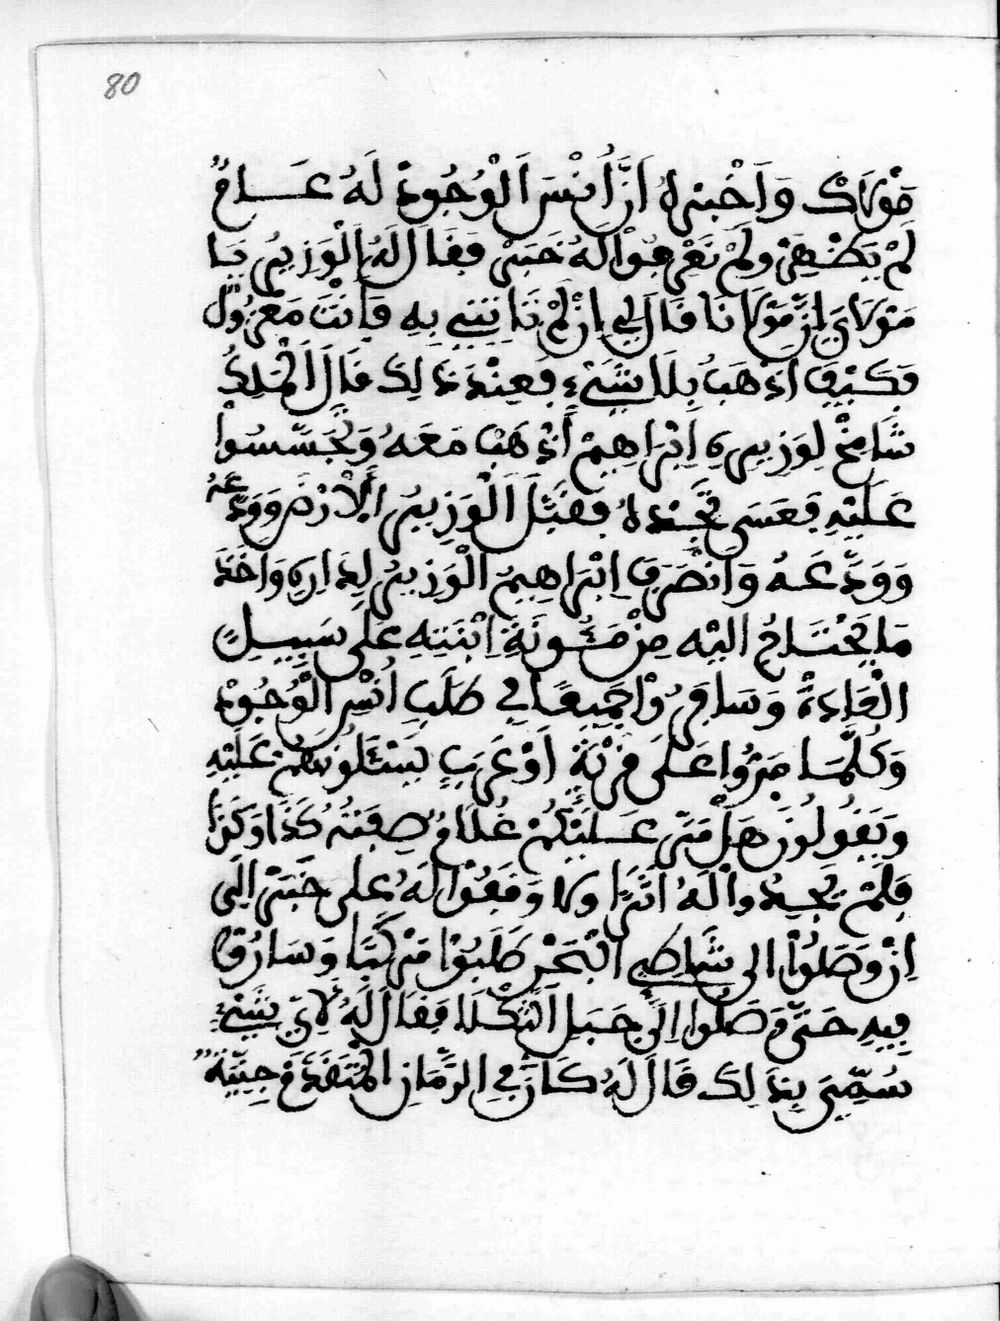 80
مَوْلَاكَ وَاَخْبِرْهُ اَنَّ اُنْسَ الْوُجُودْ لَهُ عَــامٌ
لَمْ يَظْهَرْ وَلَمْ نَعْرِفُوا لَهُ خَبَرْ فَقَالَ لَهُ الْوَزِيرُ يَا
مَوْلَايَ اِنَّ مَوْلَانَا قَالَ لِي اِنْ لَمْ تَاتِنِي بِهِ فَاَنْتَ مَعْزُولٌ
فَكَيْفَ اَذْهَبُ بِلَا شَيْءٍ فَعِنْدَ ذَلِكَ قَالَ الْمَلِكُ
شَامِخْ لِوَزِيرِهِ اِبْرَاهِيمْ اَذْهَبْ مَعَهُ وَتَجَسَّسُوا
عَلَيْهِ فَعَسَى تَجِدْهُ فَقَبَّلَ الْوَزِيرُ الْاَرْضَ وَوَدَّعَهُ
وَوَدَّعَهُ وَانْصَرَفَ اِبْرَاهِيمُ الْوَزِيرُ لِدَارِهِ وَاَخَذَ
مَا يَحْتَــاجُ اِلَيْهِ مِنْ مَــئُونَةِ اِبْنَتِهِ عَلَى سَبِيــلِ
الْعَادَةْ وَسَافَرُوْا جَمِيعًا فِي طَلَبِ اُنْسِ الْوُجُودْ
وَكُلَّمَــا مَرُّوا عَــلَى قَرْيَةٍ اَوْ عَرَبٍ يَسْئَلُونَهُمْ عَلَيْهِ
وَيَقُولُونَ هَلْ مَرَّ عَــلَيْكُمْ غُلَامٌ صِفَتُهُ كَذَا وَكَذَا
فَلَمْ يَجِدُوا لَهُ اَثَرًا وَلَا وَقَعُوْا لَهُ عَلَى خَبَرْ اِلَى
اِنْ وَصَلُوْا اِلَى شَاطِي الْبَحْرْ طَلَبُوْا مَرْكَبًا وَسَارُوْا
فِيهِ حَتَّى وَصَلُوا اِلَى جَبَلِ الثَّكْلَا فَقَالَ لَهُ لِاَيِّ شَيْءٍ
سُمِّيَ بِذَلِكَ قَالَ لَهُ كَانَ فِي الزَّمَانِ الْمُتَقَدِّمْ جِنِّيَّةٌ